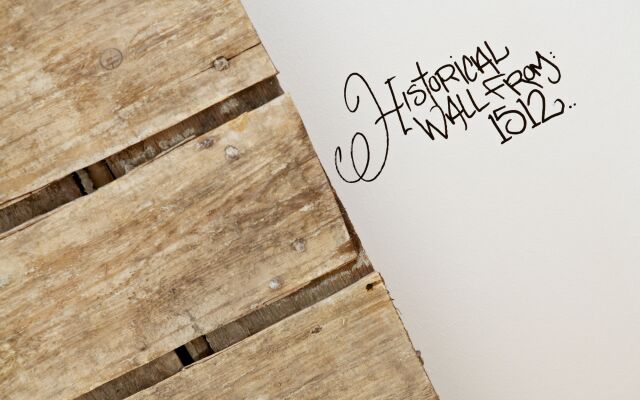 HistoricAL
WALL From:
1512..